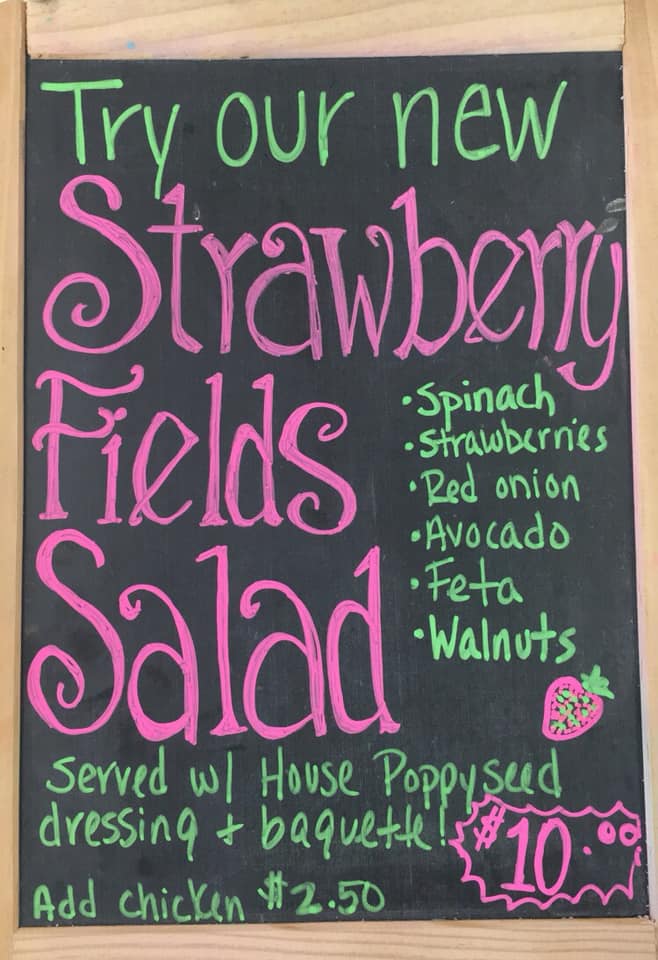 Try our new
Strawberry
Fields
Salad
• Spinach
• Strawberries
• Red onion
• Avocado
• Feta
• Walnuts
Served w/ House Poppyseed
dressing + baguette!
$10.00
Add chicken $2.50